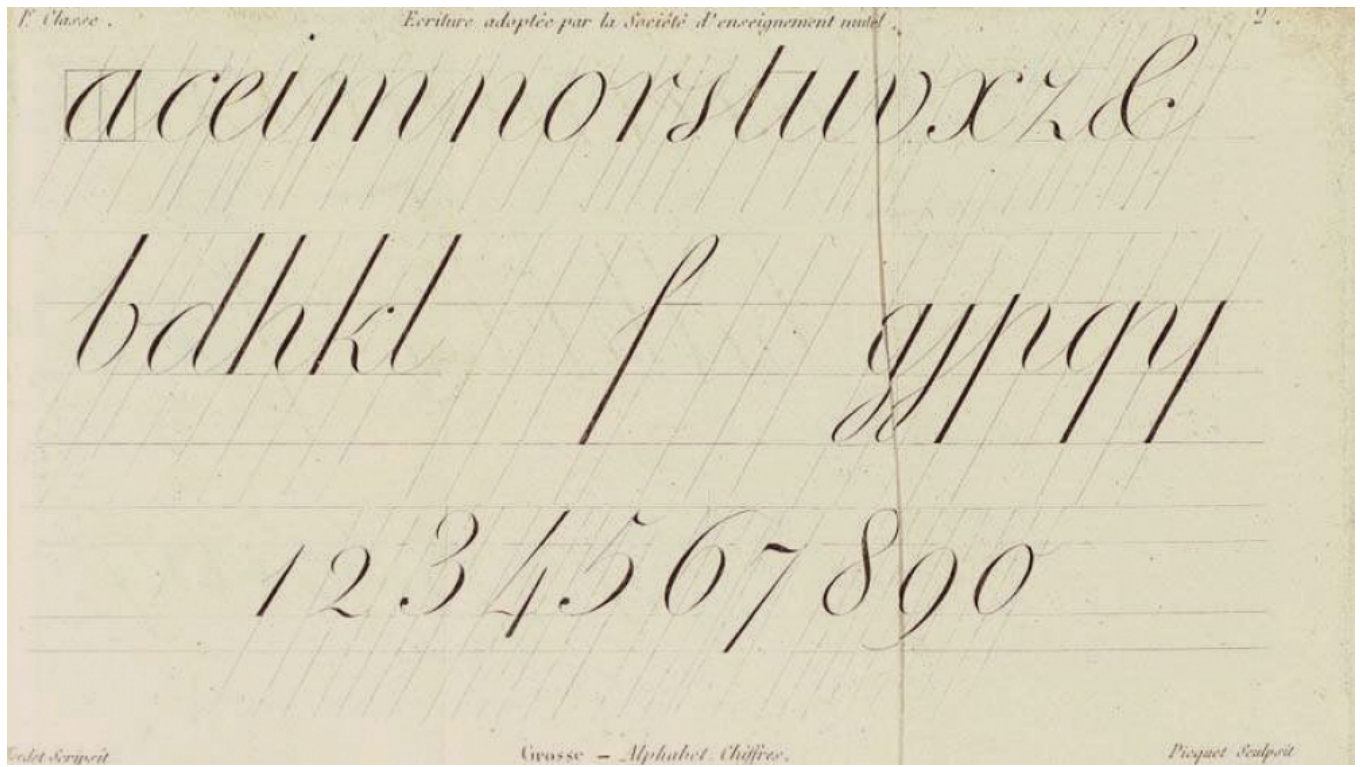 Classe. Ecriture adoptée par la Société d'enseignement mutel. 2.
a c e i m n o r s t u v x z &
b d h k l f g j p q y
1 2 3 4 5 6 7 8 9 0
Scripsit Grosse – Alphabet. Chiffres. Picquet Sculpsit